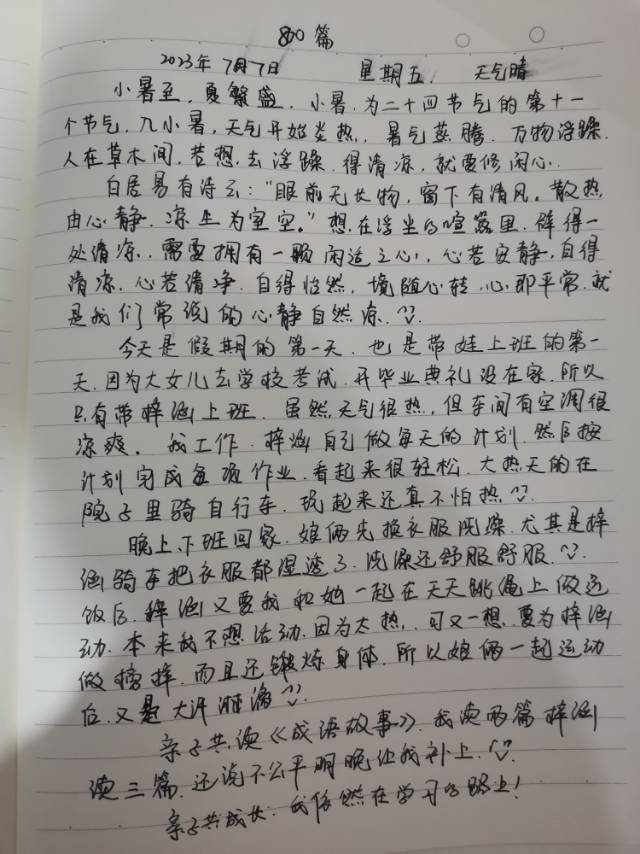 800篇
2023年7月7日 星期五. 天气晴
小暑至,夏繁盛,小暑,为二十四节气的第十一
个节气,入小暑,天气开始炎热,暑气蒸腾,万物浮躁.
人在草木间,若想去浮躁,得清凉,就要修闲心.
白居易有诗云:"眼前无长物,窗下有清风。散热
由心静,凉生为室空。"想在浮尘的喧嚣里,辟得一
处清凉,需要拥有一颗闲适之心,心若安静,自得
清凉,心若清净,自得怡然,境随心转,心即平常,就
是我们常说的心静自然凉.
今天是假期的第一天,也是带娃上班的第一
天,因为大女儿去学校考试,开毕业典礼没在家,所以
只有带梓涵上班,虽然天气很热,但车间有空调很
凉爽。我工作,梓涵自己做每天的计划,然后按
计划完成每项作业,看起来很轻松,大热天的在
院子里骑自行车,玩起来还真不怕热.
晚上,下班回家,娘俩先换衣服洗澡,尤其是梓
涵骑车把衣服都湿透了,洗澡还舒服舒服.
饭后,梓涵又要我和她一起在天天跳绳上做运
动,本来我不想活动,因为太热,可又一想,要为梓涵
做榜样,而且还锻炼身体,所以娘俩一起运动
后,又是大汗淋漓
亲子共读《成语故事》,我读两篇梓涵
读三篇,还说不公平明晚让我补上.
亲子共成长,我依然在学习的路上!